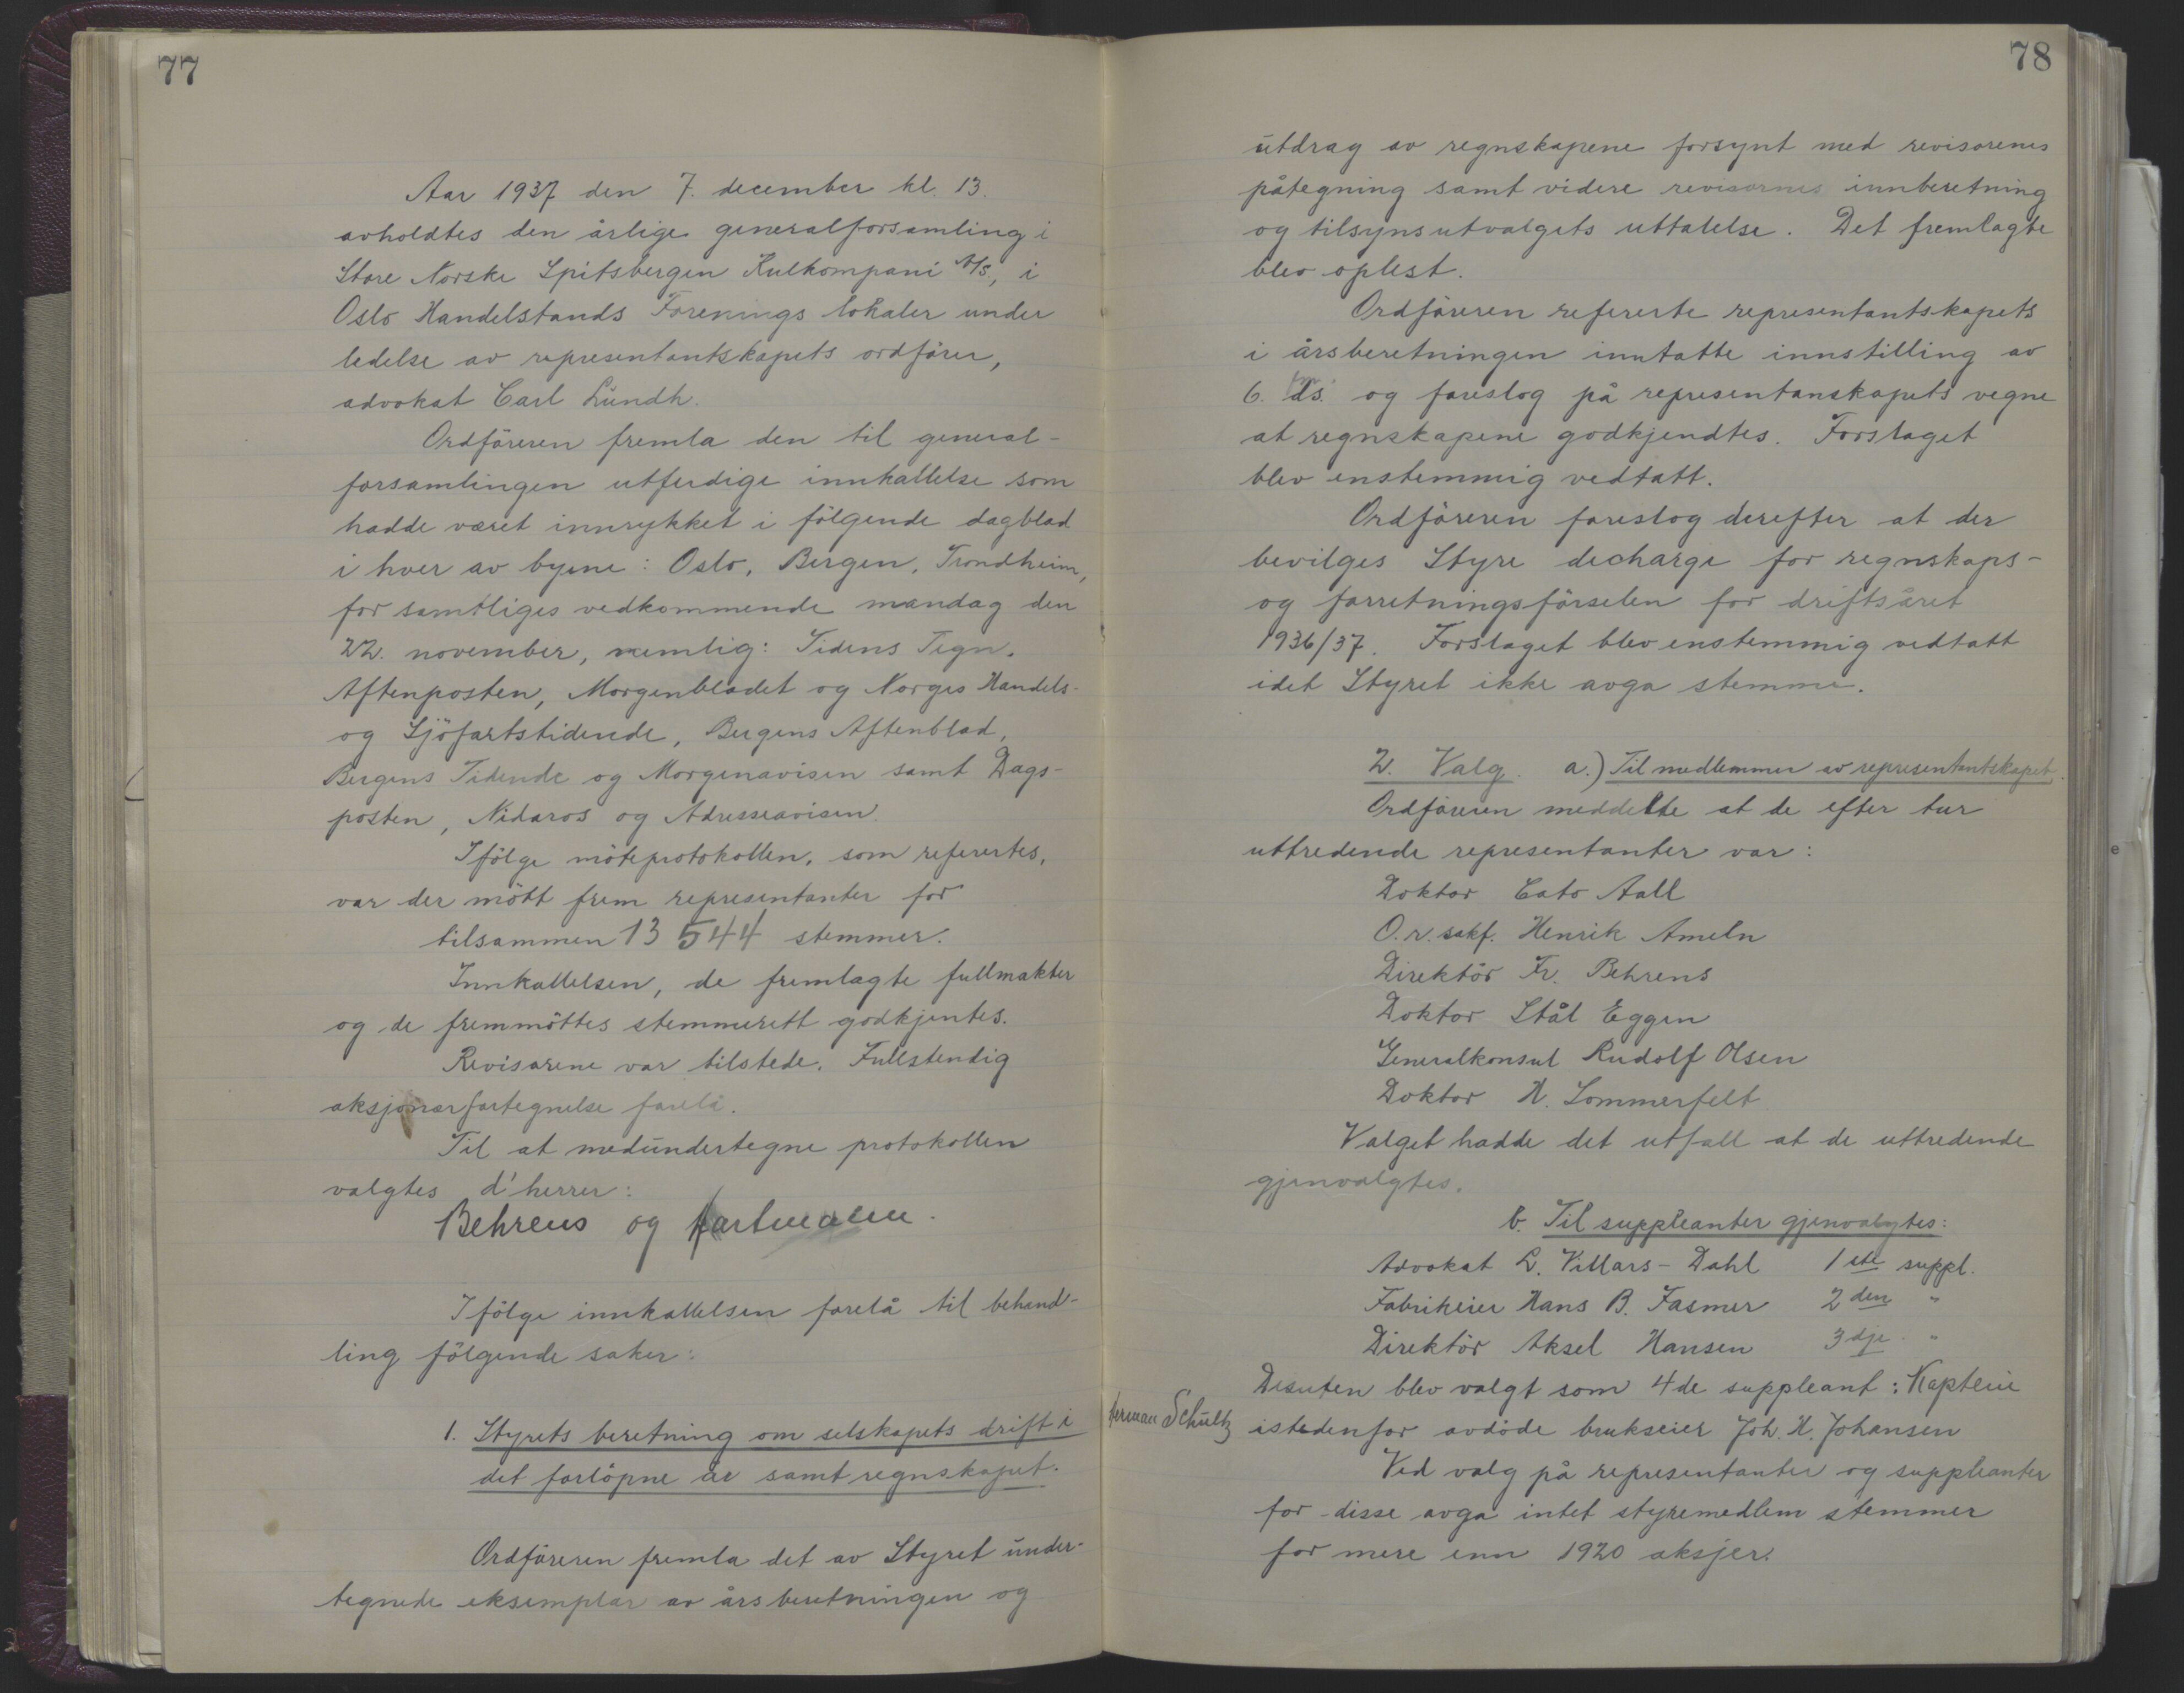 77
Aar 1937 den 7. december kl. 13.
avholdtes den årlige generalforsamling i
Store Norske Spitsbergen Kulkompani A/S, i
Oslo Handelstands Forenings lokaler under
ledelse av representantskapets ordförer,
advokat Carl Lundh.
Ordföreren fremla den til general-
forsamlingen utferdige innkallelse som
hadde været innrykket i fölgende dagblad
i hver av byene: Oslo, Bergen, Trondheim,
for samtliges vedkommende mandag den
22. november, nemlig: Tidens Tegn,
Aftenposten, Morgenbladet og Norges Handels-
og Sjöfartstidende, Bergens Aftenblad,
Bergens Tidende og Morgenavisen samt Dags-
posten, Nidaros og Adresseavisen.
Ifölge möteprotokollen, som refertes,
var der mött frem representanter for
tilsammen 13 544 stemmer.
Innkallelsen, de fremlagte fullmakter
og de fremmöttes stemmerett godkjentes.
Revisorene var tilstede. Fullstendig
aksjonærfortegnelse forelå.
Til at medundertegne protokollen
valgtes d'herrer:
Behrens og Hartmann.
Ifölge innkallelsen forelå til behand-
ling fölgende saker:
1. Styrets beretning om selskapets drift i
det forlöpne år samt regnskapet.
Ordföreren fremla det av Styret under-
tegnede eksemplar av årsberetningen og
78
utdrag av regnskapene forsynt med revisorenes
påtegning samt videre revisornes innberetning
og tilsynsutvalgets uttalelse. Det fremlagte
blev oplest.
Ordföreren refererte representantskapets
i årsberetningen inntatte innstilling av
6. ds. og foreslog på representanskapets vegne
at regnskapene godkjendtes. Forslaget
blev enstemmig vedtatt.
Ordföreren foreslog derefter at der
bevilges Styre decharge for regnskaps-
og forretningsförselen for driftsåret
1936/37. Forslaget blev enstemmig vedtatt
idet Styret ikke avga stemme.
2. Valg. a.) Til medlemmer av representantskapet.
Ordföreren meddelte at de efter tur
uttredende representanter var:
Doktor Cato Aall
O.r.sakf. Henrik Ameln
Direktör Fr. Behrens
Doktor Stål Eggen
Generalkonsul Rudolf Olsen
Doktor H. Sommerfelt
Valget hadde det utfall at de uttredende
gjenvalgtes.
b. Til suppleanter gjenvalgtes:
Advokat L. Villars-Dahl 1ste suppl.
Fabrikeier Hans B. Fasmer 2den "
Direktör Aksel Hansen 3dje "
Desuten blev valgt som 4de suppleant: Kaptein
Herman Schultz istedenfor avdöde brukseier Joh. H. Johansen
Ved valg på representanter og suppleanter
for disse avga intet styremedlem stemmer
for mere enn 1920 aksjer.